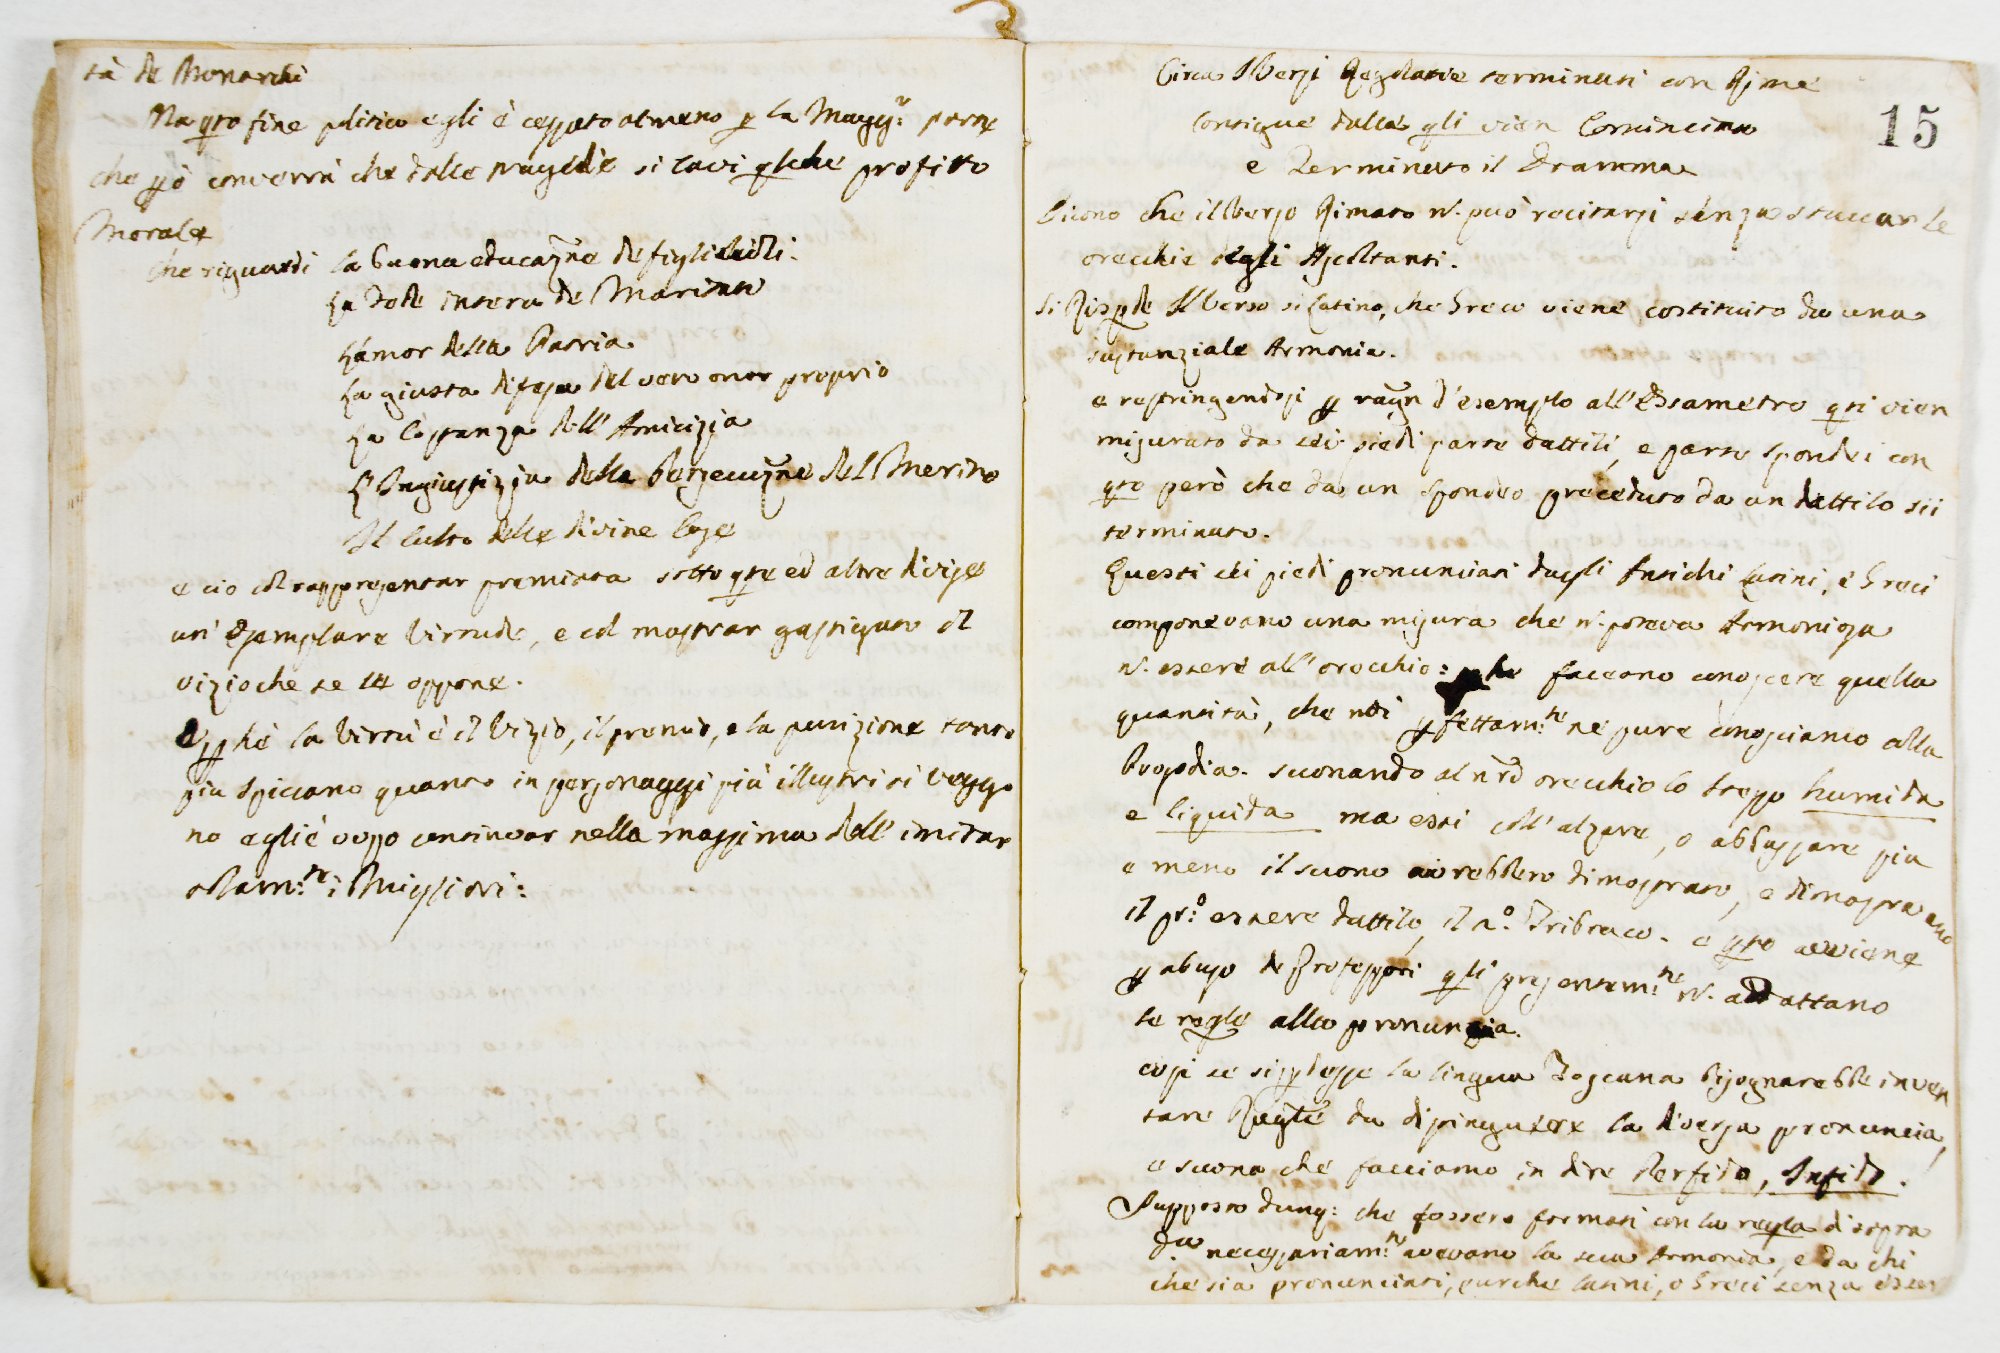 tà de Monarchi
Ma qto fine politico egli è cessato almeno p la Magg.r parte
che pò converrà che dalle tragedie si cavi qlche profitto
Morale
che riguardi la buona educazne de figlioli.
La dote intera de Maritati
L'amor della Patria
La giusta difesa del vero onor proprio
La Costanza dell' Amicizia
L'Ingiustizia della Persecuzne del Merito
Il culto delle divine Cose
e cio col rappresentar premiata sotto qste ed altre divise
un' Esemplare Virtude, e col mostrar gastigato il
vizio che se le oppone.
E pche la Virtù è il Vizio, il premio, e la punizione tanto
più spiccano quanto in personaggi più illustri si veggo
no egli è uopo continuar nella massima dell' imitar
solam:te i Migliori:
Circa I Versi Regolati e terminati con Rime
Contigue dalle qli vien Cominciato
e Terminato il Dramma
15
Dicono che il Verso Rimato n. può recitarsi senza stuccar le
orecchie degli Ascoltanti.
Si Rispde Il Verso si Latino, che Greco viene costituito da una
sustanziale Armonia.
e restringendosi p ragn d'esempio all' Essametro qsti vien
misurato da sei piedi parte dattili, e parte spondei con
qto però che da un spondeo preceduto da un dattilo sii
terminato.
Questi sei piedi pronunciati dagli Antichi Latini, e Greci
componevano una misura che n. poteva Armoniosa
n. essere all' orecchio: che faceano conoscere quella
quantità, che noi pfettam:te ne pure conosciamo alla
Prosodia. suonando al nro orecchio lo stesso humida
e liquida ma essi coll' alzare, o abbassare più
o meno il suono avrebbero dimostrato, e dimostravano
il pr:o essere dattilo, il 2.o Tribraco. e qsto avviene
p abuso de Professori qli presentem:te n. adattano
le regle alla pronunzia.
così se si pdesse la lingua Toscana bisognarebbe inven
tare Regle da dipinguere la diversa pronuncia,
e suono che facciamo in dire Perfido, Infido.
Supposto dunq: che fossero formati con la regla di sopra
da necessariam:te avevano la sua Armonia, e da chi
che sia pronunciati, purche Latini, o Greci senza esser